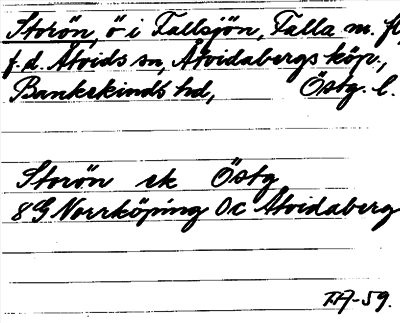 Storön, ö i Fallsjön, Falla m. fl,
f.d. Åtvids sn, Åtvidabergs köp.,
Bankekinds hd, Östg. l.
Storön ek Östg
8G Norrköping 0c Åtvidaberg
TA7-59.